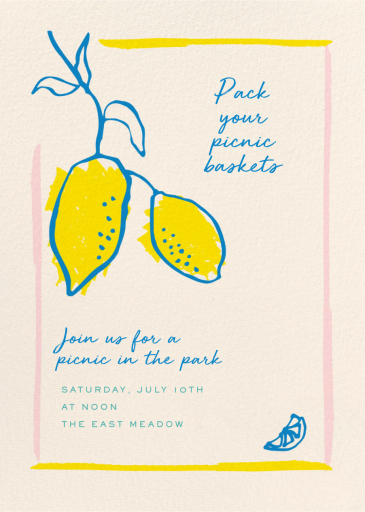 Pack
your
picnic
baskets
Join us for a
picnic in the park
SATURDAY, JULY 10TH
AT NOON
THE EAST MEADOW